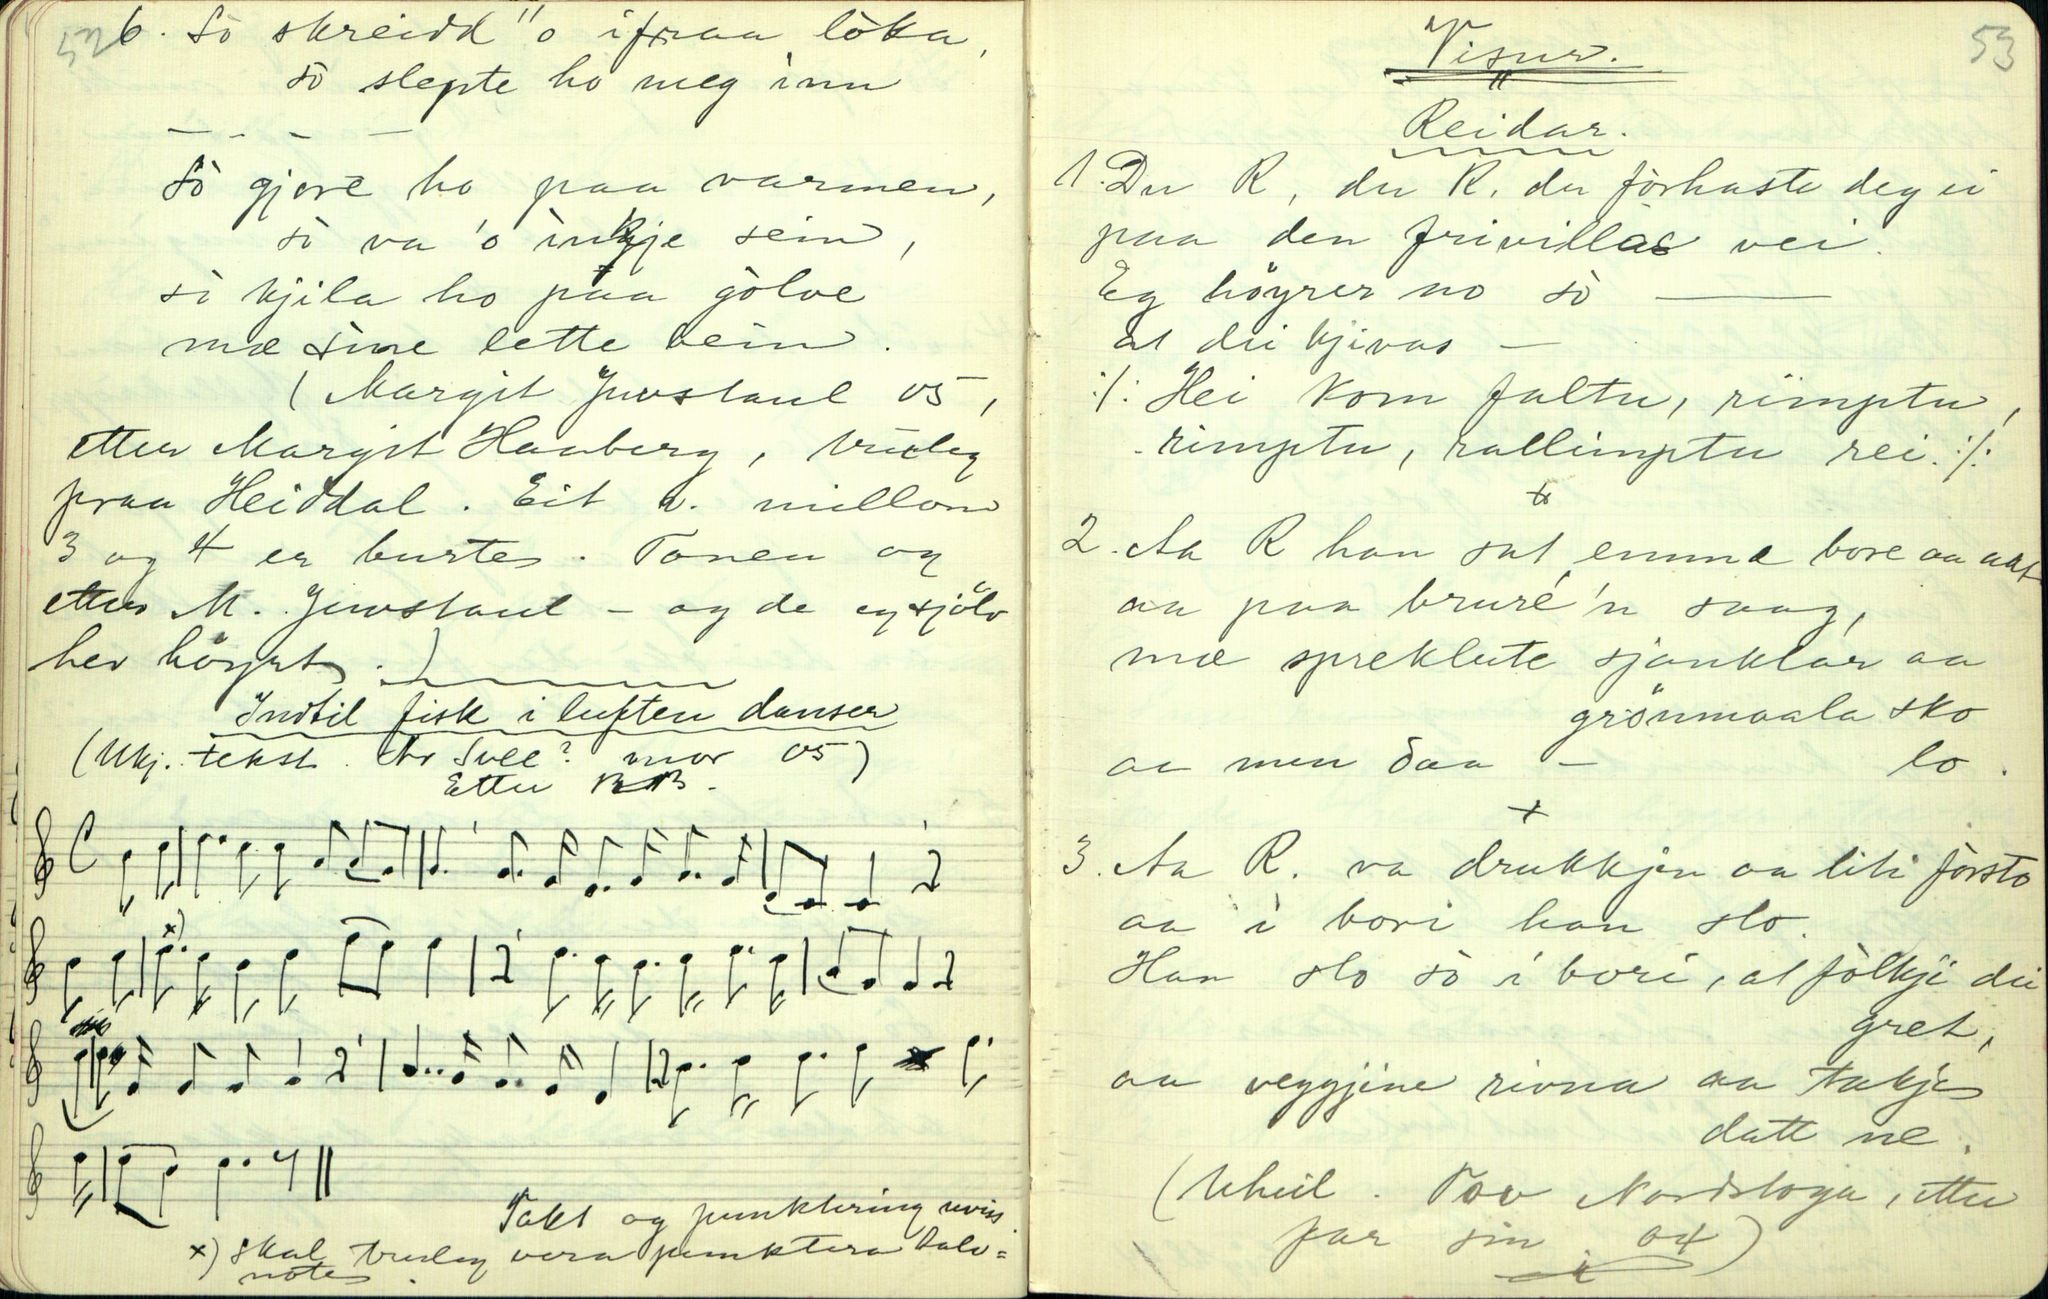 52
6. Sò skreidd "o ifraa lòka,
sò slepte ho meg inn
— - - —
Sò gjore ho paa varmen,
sò va 'o inkje sein,
sò kjila ho paa gòlve
mæ sine lette bein.
(Margit Juvstaul 05,
etter Margit Hanberg, truleg
fraa Heiddal. Eit v. millom
3 og 4 er burte. Tonen og
etter M. Juvstaul - og de eg sjölv
hev höyrt.)
Indtil fisk i luften danser
(Ukj. tekst. mor 05)
Etter
x)
Takt og punktering uviss.
x) Skal truleg vera punktera halv=
note.
53
Visur.
Reidar.
1. Du R, du R. du förhaste deg ei
paa den frivillas vei.
Eg höyrer no sò ——
at dei kjivas —
:/: Hei kom faltu, rimptu,
rimptu, rallimptu rei. :/:
x
2. Aa R han sat emmæ bore aa aat
aa paa brure'n saag,
mæ spreklute sjanklar aa
grönmaala sko
aa men daa — lo.
x
3. Aa R. va drukkjen aa liti försto
aa i bori han slo.
Han slo sò i bori, at fòlkji dei
gret,
aa veggjine rivna aa takje
datt ne.
(Uheil. Tov Nordstoga, etter
far sin. 04)